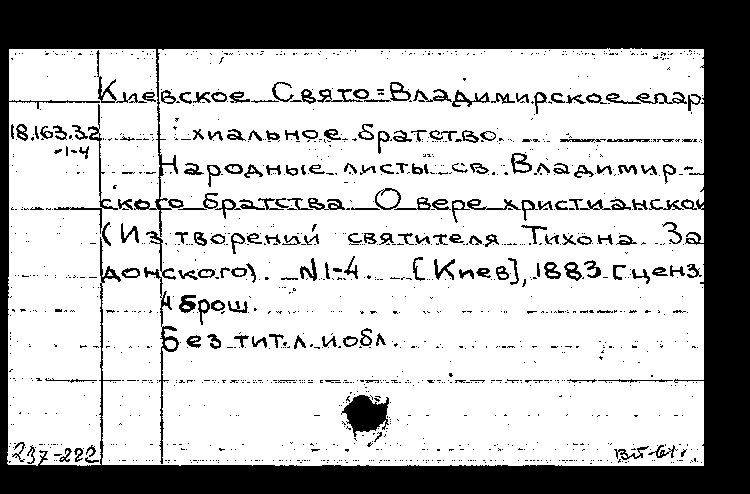 Киевское Свято=Владимирское епар
18.163.3.2 хиальное братство.
-1-4
Народные листы св. Владимир-
ского братства. О вере христианской
(Из творений святителя Тихона За
донского). N1-4. [Киев], 1883 [ценз
4 брош.
Без тит.л. и обл.
237-222